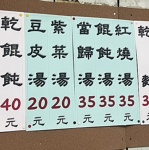 乾餛飩40元
豆皮湯20元
紫菜湯20元
當歸湯35元
餛飩湯35元
紅燒湯35元